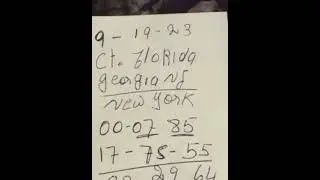 9 - 19 - 23
Ct. Florida
georgia NJ
New York
00-07 85
17 - 75 - 55
29 64